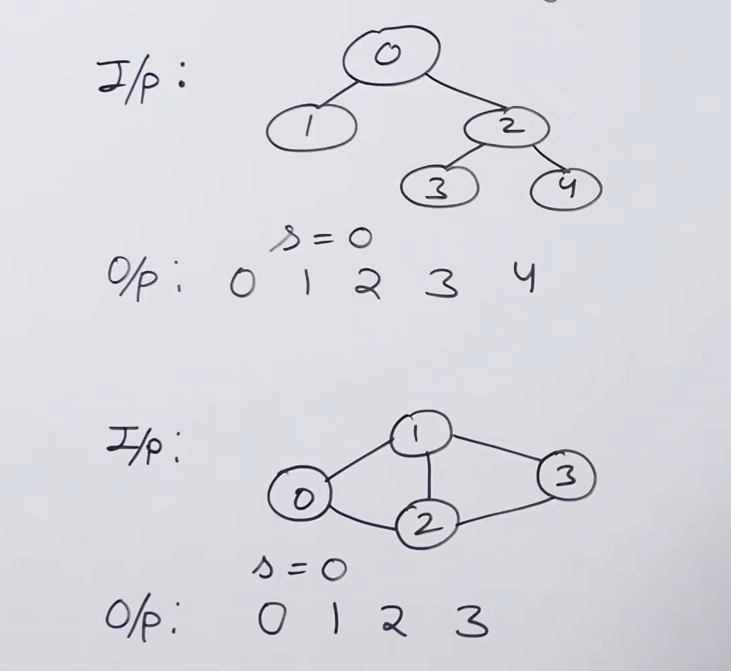 I/p :
0
1 2
3 4
s = 0
O/p : 0 1 2 3 4
I/p :
1
0 3
2
s = 0
O/p : 0 1 2 3